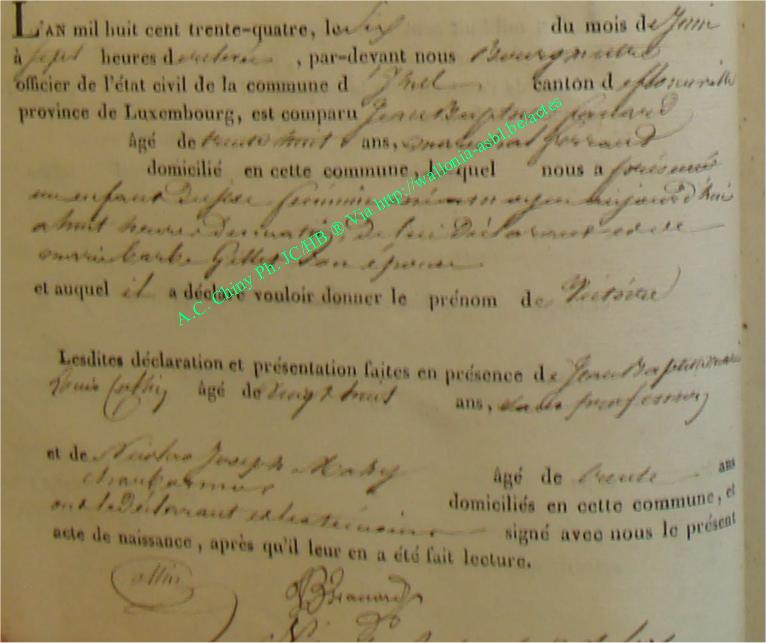 L'AN mil huit cent trente-quatre, le six du mois de Juin
à sept heures , par-devant nous Bourgmestre
officier de l'état civil de la commune d' canton d
province de Luxembourg, est comparu Jean Baptiste
âgé de trente huit ans, maréchal ferrant
domicilié en cette commune, lequel nous a présenté
un enfant du sexe féminin aujourd'hui
à huit heures du matin, de lui déclarant et de
marie barbe Gillet son épouse
et auquel il a déclaré vouloir donner le prénom de
Lesdites déclaration et présentation faites en présence de Jean Baptiste
Louis Collin âgé de vingt huit ans, sans profession
et de Nicolas Joseph âgé de trente ans
domiciliés en cette commune, et
ont le déclarant et les témoins signé avec nous le présent
acte de naissance, après qu'il leur en a été fait lecture.
A.C. Chiny Ph. JC/HB ® Via http://wallonia-asbl.be/actes